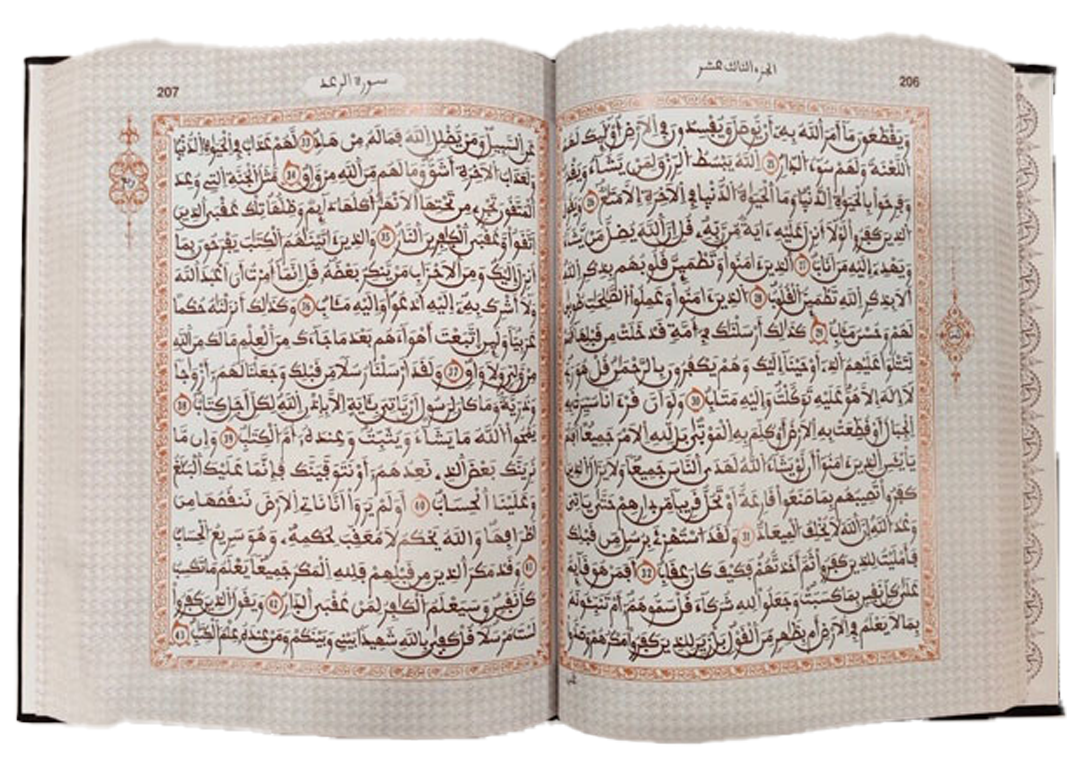 206
الجزء الثالث عشر
ويقطعون ما أمر الله به أن يوصل ويفسدون في الارض أولئك لهم
اللعنة ولهم سوء الدار 25 الله يبسط الرزق لمن يشاء ويقدر
وفرحوا بالحيوة الدنيا وما الحيوة الدنيا في الاخرة إلا متع 26 ويقول
الذين كفروا لولا أنزل عليه ءاية من ربه قل إن الله يضل من يشاء
ويهدى إليه من اناب 27 الذين ءامنوا وتطمئن قلوبهم بذكر الله
ألا بذكر الله تطمئن القلوب 28 الذين ءامنوا وعملوا الصلحت طوبى
لهم وحسن مئاب 29 كذلك أرسلنك في أمة قد خلت من قبلها أمم
لتتلوا عليهم الذى أوحينا إليك وهم يكفرون بالرحمن قل هو ربى
لا إله إلا هو عليه توكلت وإليه متاب 30 ولو أن قرءانا سيرت به
الجبال أو قطعت به الارض أو كلم به الموتى بل لله الامر جميعا أفلم
يايئس الذين ءامنوا أن لو يشاء الله لهدى الناس جميعا ولا يزال الذين
كفروا تصيبهم بما صنعوا قارعة أو تحل قريبا من دارهم حتى ياتى
وعد الله إن الله لا يخلف الميعاد 31 ولقد استهزئ برسل من قبلك
فأمليت للذين كفروا ثم أخذتهم فكيف كان عقاب 32 أفمن هو قائم
على كل نفس بما كسبت وجعلوا لله شركاء قل سموهم أم تنبئونه
بما لا يعلم في الارض أم بظهر من القول بل زين للذين كفروا مكرهم وصدوا
207
سورة الرعد
عن السبيل ومن يضلل الله فما له من هاد 33 لهم عذاب في الحيوة الدنيا
ولعذاب الاخرة أشق وما لهم من الله من واق 34 مثل الجنة التي وعد
المتقون تجرى من تحتها الانهر أكلها دائم وظلها تلك عقبى الذين
اتقوا وعقبى الكفرين النار 35 والذين ءاتينهم الكتب يفرحون بما
أنزل إليك ومن الاحزاب من ينكر بعضه قل إنما أمرت أن اعبد الله
ولا أشرك به إليه أدعوا وإليه مئاب 36 وكذلك أنزلنه حكما
عربيا ولئن اتبعت أهواءهم بعد ما جاءك من العلم ما لك من الله
من ولى ولا واق 37 ولقد ارسلنا رسلا من قبلك وجعلنا لهم أزوجا
وذرية وما كان لرسول أن ياتى بئاية إلا بإذن الله لكل أجل كتاب 38
يمحوا الله ما يشاء ويثبت وعنده أم الكتب 39 وإن ما
نرينك بعض الذى نعدهم أو نتوفينك فإنما عليك البلغ
وعلينا الحساب 40 أولم يروا انا ناتى الارض ننقصها من
أطرافها والله يحكم لا معقب لحكمه وهو سريع الحساب
41 وقد مكر الذين من قبلهم فلله المكر جميعا يعلم ما تكسب
كل نفس وسيعلم الكفر لمن عقبى الدار 42 ويقول الذين كفروا
لست مرسلا قل كفى بالله شهيدا بينى وبينكم ومن عنده علم الكتب 43